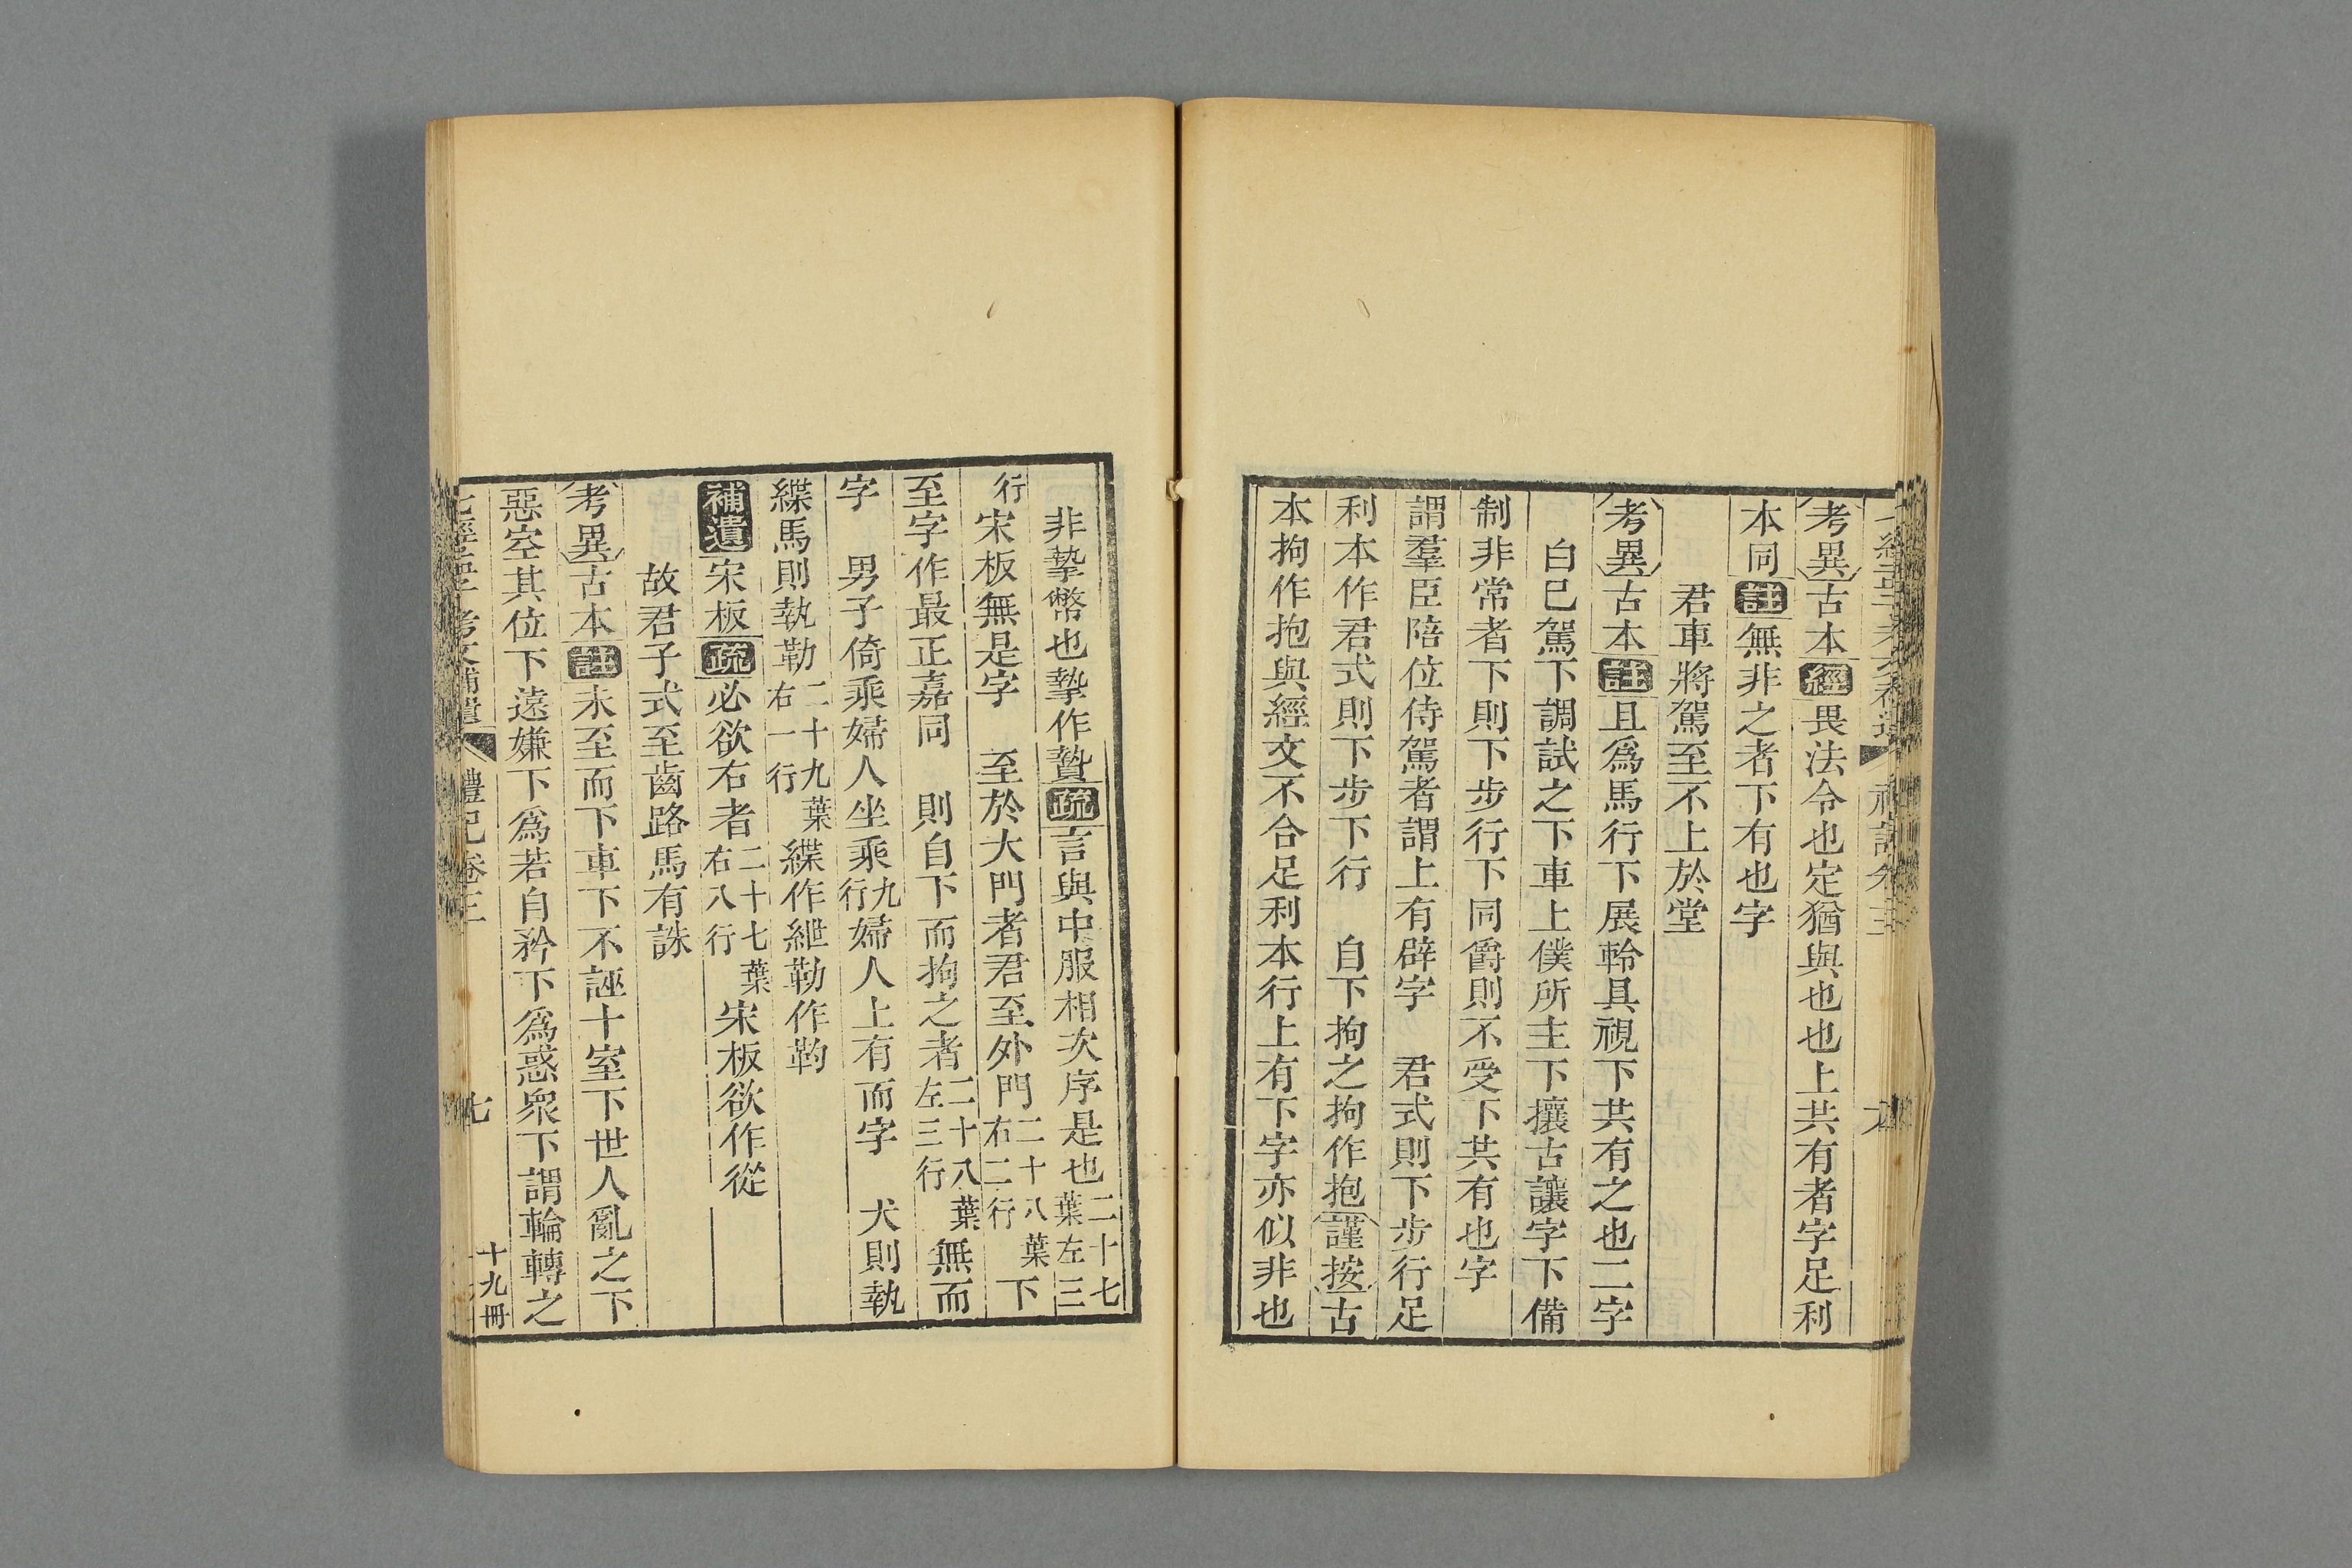 考異古本經畏法令也定猶與也也上共有者字足利
本同註無非之者下有也字
君車將駕至不上於堂
考異古本註且爲馬行下展軨具視下共有之也二字
白已駕下調試之下車上僕所主下攘古讓字下備
制非常者下則下步行下同爵則不受下共有也字
謂羣臣陪位侍駕者謂上有辟字 君式則下步行足
利本作君式則下步下行 自下拘之拘作抱謹按古
本拘作抱與經文不合足利本行上有下字亦似非也
非摯幣也摯作贄疏言與中服相次序是也二十七葉左三
行宋板無是字 至於大門者君至外門二十八葉右二行下
至字作最正嘉同 則自下而拘之者二十八葉左三行無而
字 男子倚乘婦人坐乘九行婦人上有而字 犬則執
緤馬則執勒二十九葉右一行緤作紲勒作靮
補遺宋板疏必欲右者二十七葉右八行宋板欲作從
故君子式至齒路馬有誅
考異古本註未至而下車下不誣十室下世人亂之下
惡空其位下遠嫌下爲若自矜下爲惑衆下謂輪轉之
七經孟子考文補遺 禮記卷三 七 十九冊